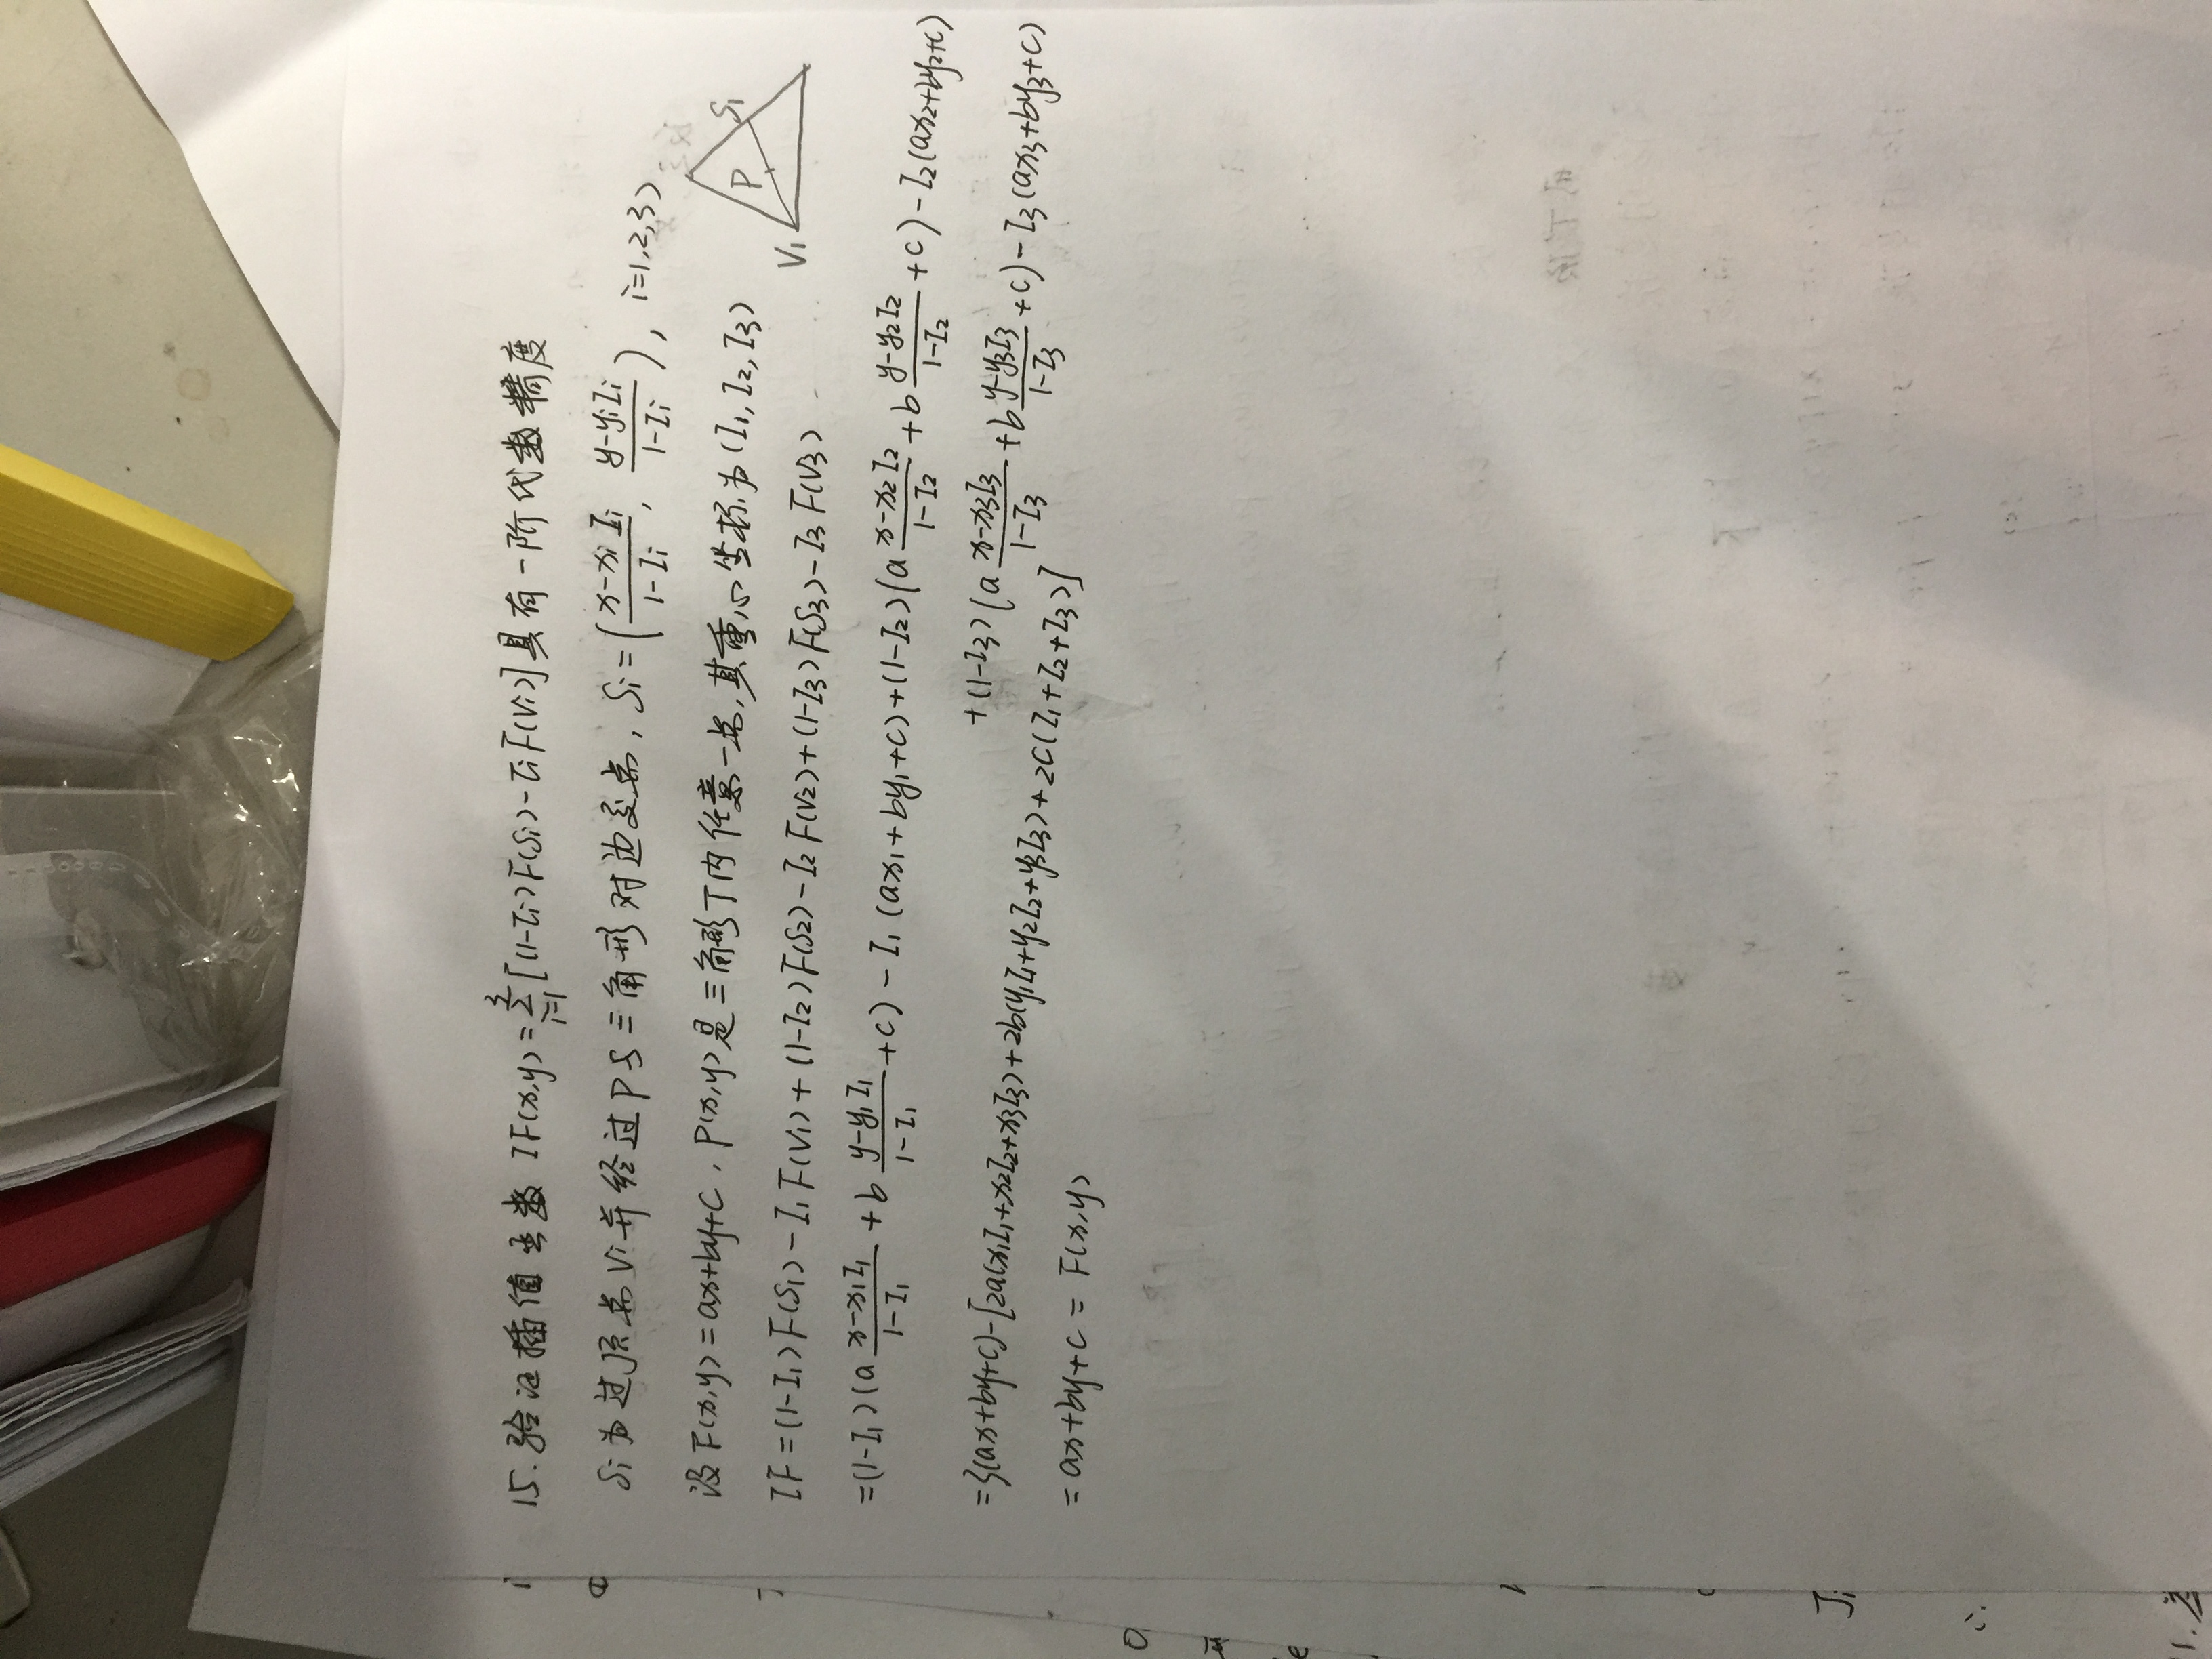 15.验证插值函数 IF(x,y)=∑_{i=1}^{3}[(1-Ii)F(Si)-IiF(Vi)]具有一阶代数精度
Si为过顶点Vi并经过P与三角形对边交点, Si=((x-xiIi)/(1-Ii), (y-yiIi)/(1-Ii)), i=1,2,3
设F(x,y)=ax+by+c, P(x,y)是三角形T内任意一点,其重心坐标为(I1,I2,I3)
S1
P
V1
IF=(1-I1)F(S1)-I1F(V1)+(1-I2)F(S2)-I2F(V2)+(1-I3)F(S3)-I3F(V3)
=(1-I1)(a(x-x1I1)/(1-I1)+b(y-y1I1)/(1-I1)+c)-I1(ax1+by1+c)+(1-I2)(a(x-x2I2)/(1-I2)+b(y-y2I2)/(1-I2)+c)-I2(ax2+by2+c)
+(1-I3)(a(x-x3I3)/(1-I3)+b(y-y3I3)/(1-I3)+c)-I3(ax3+by3+c)
=3(ax+by+c)-[2a(x1I1+x2I2+x3I3)+2b(y1I1+y2I2+y3I3)+2c(I1+I2+I3)]
=ax+by+c=F(x,y)